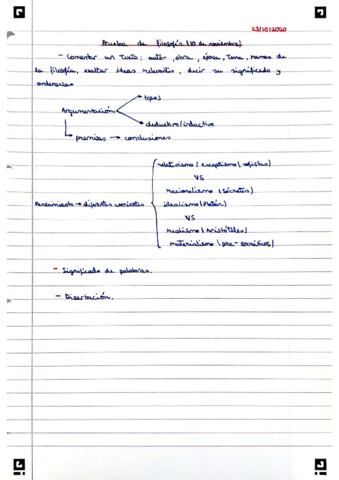 23/10/2020
Prueba de filosofía (10 de noviembre)
- Comentar un texto: autor, obra, época, tema, ramas de
la filosofía, exaltar ideas relevantes, decir su significado y
ordenarlas
Argumentación
tipos
deductivo/inductivo
premisas → conclusiones
relativismo (escepticismo/sofistas)
VS
racionalismo (Sócrates)
Pensamiento → diferentes corrientes
idealismo (Platón)
VS
realismo (Aristóteles)
materialismo (pre-socráticos)
- Significado de palabras.
- Disertación.